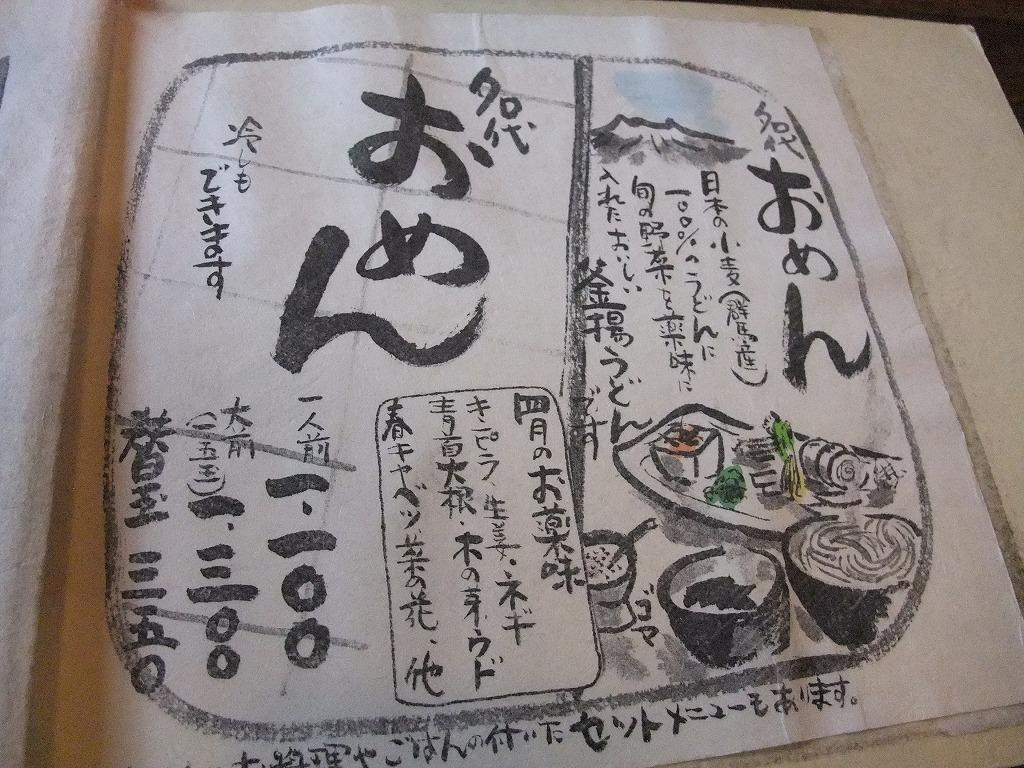 名代
おめん
日本の小麦(群馬産)
一〇〇%のうどんに
旬の野菜を薬味に
入れたおいしい
釜揚うどんです
ゴマ
名代
おめん
冷しも
できます
四月のお薬味
きピラ、生姜、ネギ
青首大根・木の芽、ウド
春キャベツ、菜の花、他
一人前
一、一〇〇
大前
(一、五玉)
一、三〇〇
替玉 三五〇
お料理やごはんの付いた セットメニューもあります。